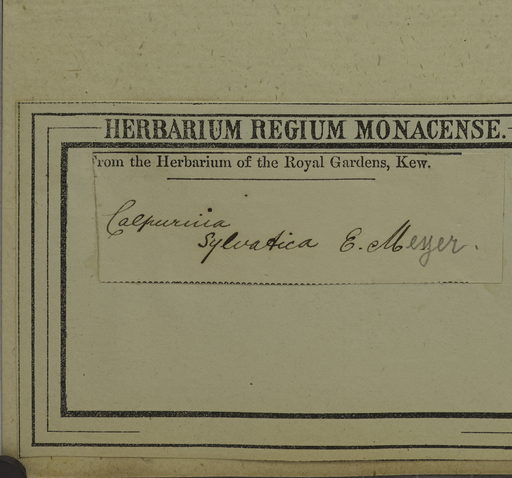 HERBARIUM REGIUM MONACENSE.
From the Herbarium of the Royal Gardens, Kew.
Calpurinia
Sylvatica E. Meyer.